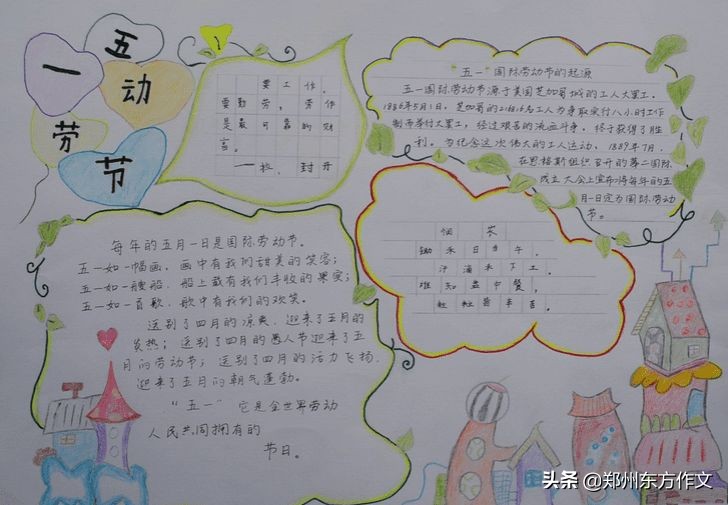 五
一
动
劳
节
要工作，
要勤劳：劳作
是最可靠的财
富。
——拉．封丹
“五一”国际劳动节的起源
五一国际劳动节源于美国芝加哥城的工人大罢工。
1886年5月1日，芝加哥的21.6万名工人为争取实行八小时工作
制而举行大罢工，经过艰苦的流血斗争，终于获得了胜
利。为纪念这次伟大的工人运动，1889年7月，
在恩格斯组织召开的第二国际
成立大会上宣布将每年的五
月一日定为国际劳动
节。
悯农
锄禾日当午，
汗滴禾下土。
谁知盘中餐，
粒粒皆辛苦。
每年的五月一日是国际劳动节。
五一如一幅画，画中有我们甜美的笑容；
五一如一艘船，船上载有我们丰收的果实；
五一如一首歌，歌中有我们的欢笑。
送别了四月的凉爽，迎来了五月的
炎热；送别了四月的愚人节迎来了五
月的劳动节；送别了四月的活力飞扬，
迎来了五月的朝气蓬勃。
“五一”它是全世界劳动
人民共同拥有的
节日。
头条 @郑州东方作文